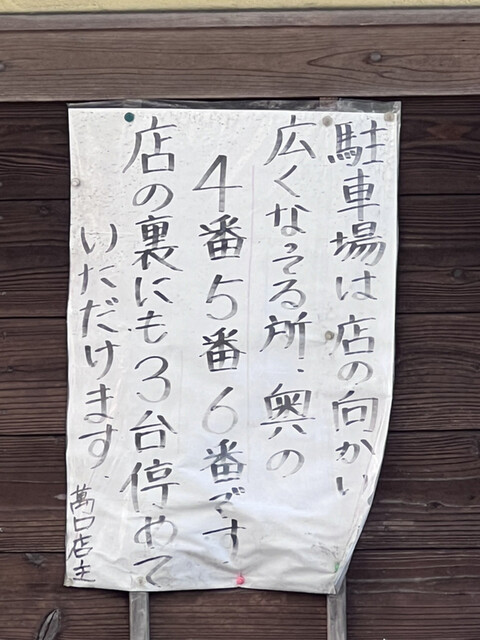 駐車場は店の向かい
広くなってる所、奥の
4番5番6番です
店の裏にも3台停めて
いただけます、
萬口店主